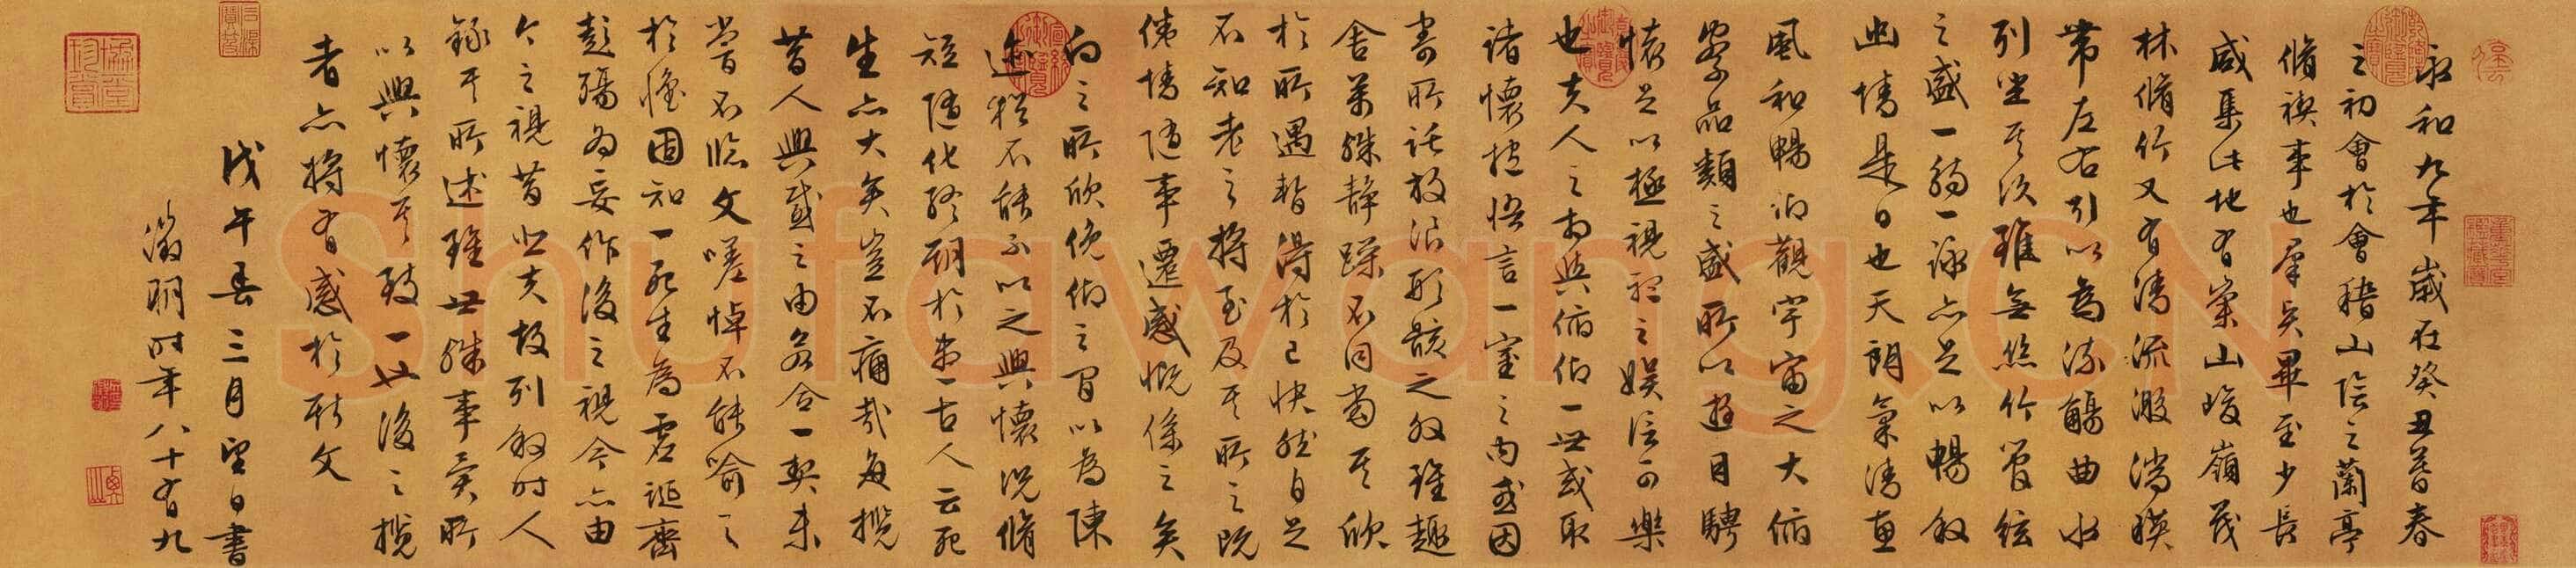 永和九年歲在癸丑暮春
之初會於會稽山陰之蘭亭
脩禊事也羣賢畢至少長
咸集此地有崇山峻嶺茂
林脩竹又有清流激湍暎
帶左右引以為流觴曲水
列坐其次雖無絲竹管絃
之盛一觴一詠亦足以暢敘
幽情是日也天朗氣清惠
風和暢仰觀宇宙之大俯
察品類之盛所以遊目騁
懷足以極視聽之娛信可樂
也夫人之相與俯仰一世或取
諸懷抱悟言一室之內或因
寄所託放浪形骸之外雖趣
舍萬殊靜躁不同當其欣
於所遇暫得於己快然自足
不知老之將至及其所之既
倦情隨事遷感慨係之矣
向之所欣俛仰之間以為陳
迹猶不能不以之興懷況脩
短隨化終期於盡古人云死
生亦大矣豈不痛哉每攬
昔人興感之由若合一契未
嘗不臨文嗟悼不能喻之
於懷固知一死生為虛誕齊
彭殤為妄作後之視今亦由
今之視昔悲夫故列敘時人
錄其所述雖世殊事異所
以興懷其致一也後之攬
者亦將有感於斯文
戊午春三月望日書
徵明時年八十有九
Shufawang.CN